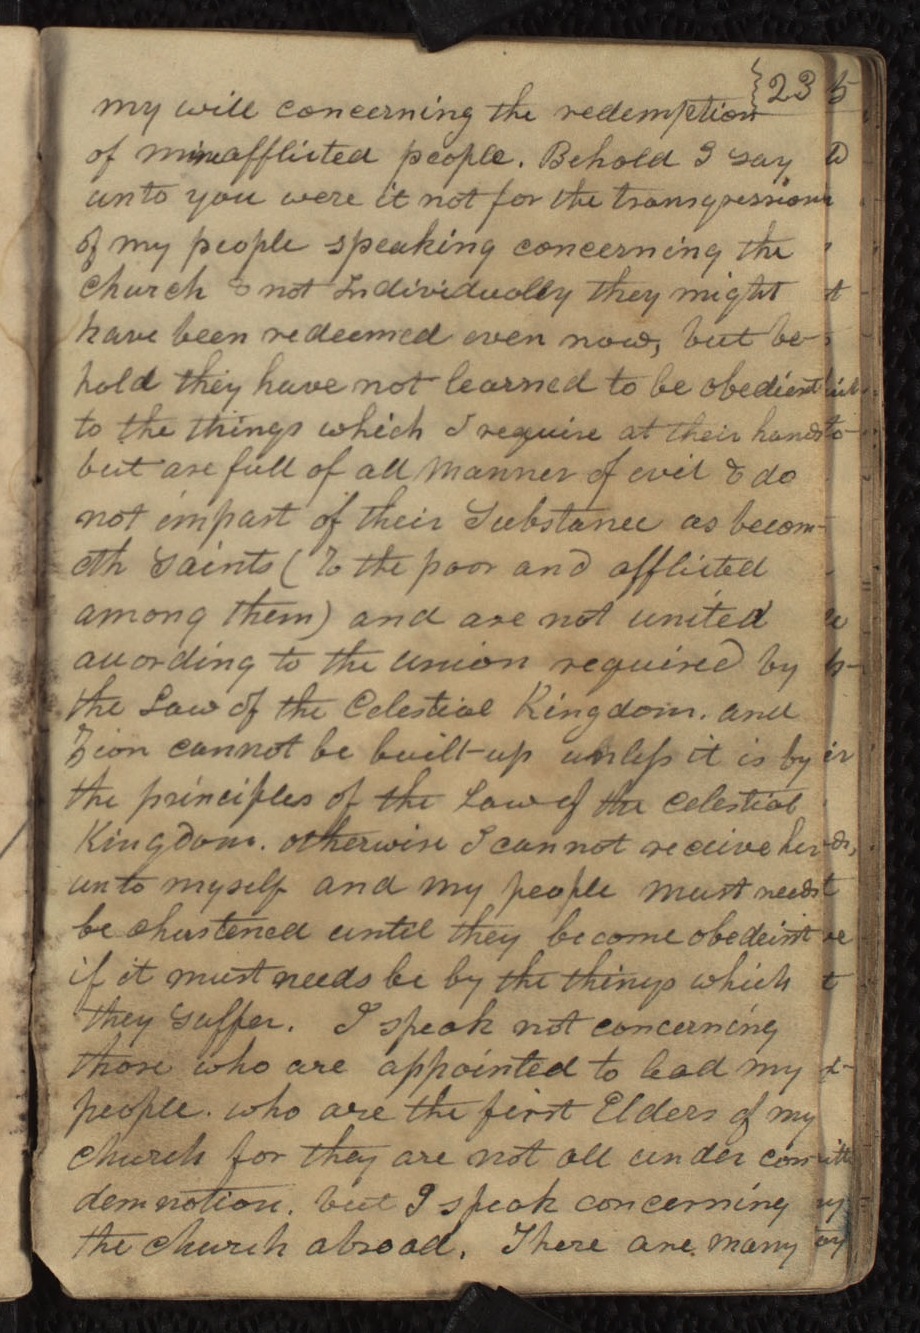 23
my will concerning the redemption
of mine afflicted people. Behold I say
unto you were it not for the transgressions
of my people speaking concerning the
Church & not Individually they might
have been redeemed even now, but be-
hold they have not learned to be obedient
to the things which I require at their hands
but are full of all manner of evil & do
not impart of their Substance as becom-
eth Saints (To the poor and afflicted
among them) and are not united
according to the union required by
the Law of the Celestial Kingdom. and
Zion cannot be built-up unless it is by
the principles of the Law of the Celestial
Kingdom. otherwise I cannot receive her
unto myself and my people must needs
be chastened until they become obedient
if it must needs be by the things which
they Suffer. I speak not concerning
those who are appointed to lead my
people. who are the first Elders of my
Church for they are not all under con-
demnation. but I speak concerning
the church abroad. There are many